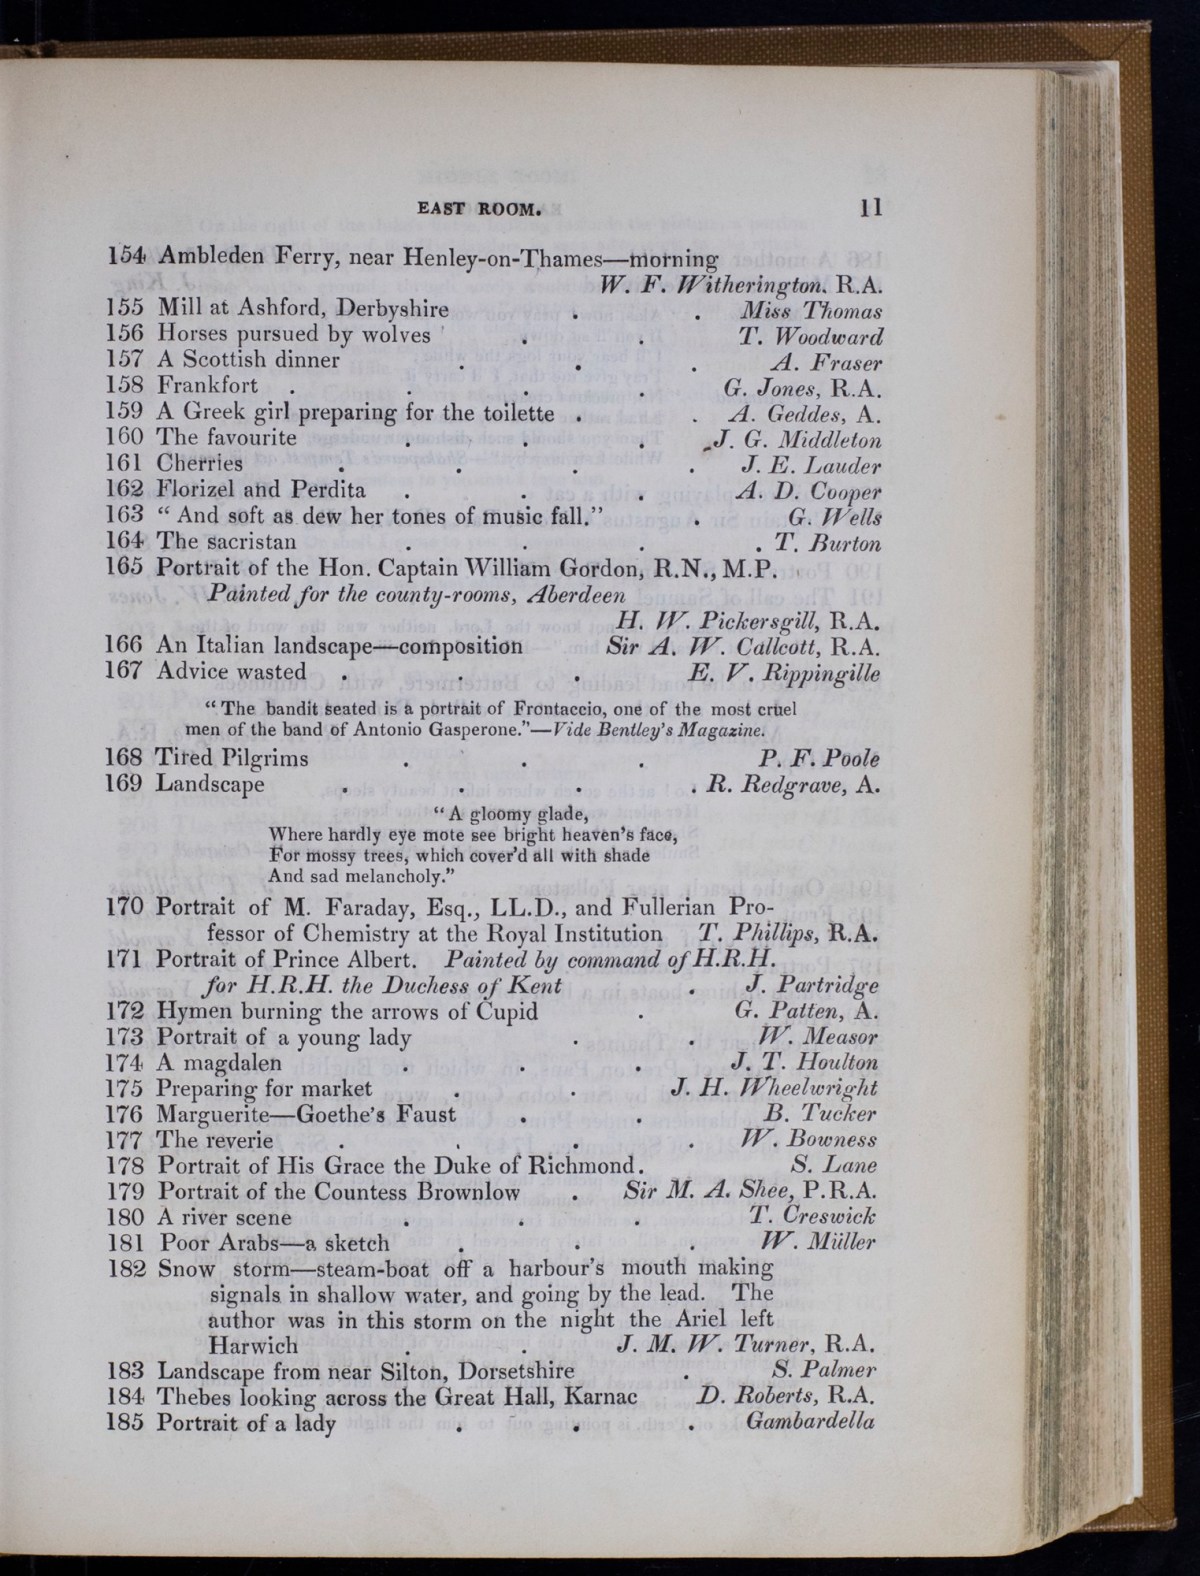 EAST ROOM. 11
154 Ambleden Ferry, near Henley-on-Thames—morning
W. F. Witherington. R.A.
155 Mill at Ashford, Derbyshire . . Miss Thomas
156 Horses pursued by wolves . . T. Woodward
157 A Scottish dinner . . . A. Fraser
158 Frankfort . . . . G. Jones, R.A.
159 A Greek girl preparing for the toilette . . A. Geddes, A.
160 The favourite . . . J. G. Middleton
161 Cherries . . . . J. E. Lauder
162 Florizel and Perdita . . . A. D. Cooper
163 “ And soft as dew her tones of music fall.” . G. Wells
164 The sacristan . . . . T. Burton
165 Portrait of the Hon. Captain William Gordon, R.N., M.P.
Painted for the county-rooms, Aberdeen
H. W. Pickersgill, R.A.
166 An Italian landscape—composition Sir A. W. Callcott, R.A.
167 Advice wasted . . . E. V. Rippingille
“ The bandit seated is a portrait of Frontaccio, one of the most cruel
men of the band of Antonio Gasperone.”—Vide Bentley's Magazine.
168 Tired Pilgrims . . . P. F. Poole
169 Landscape . . . . R. Redgrave, A.
“ A gloomy glade,
Where hardly eye mote see bright heaven's face,
For mossy trees, which cover'd all with shade
And sad melancholy.”
170 Portrait of M. Faraday, Esq., LL.D., and Fullerian Pro-
fessor of Chemistry at the Royal Institution T. Phillips, R.A.
171 Portrait of Prince Albert. Painted by command of H.R.H.
for H.R.H. the Duchess of Kent . J. Partridge
172 Hymen burning the arrows of Cupid . G. Patten, A.
173 Portrait of a young lady . . W. Measor
174 A magdalen . . . J. T. Houlton
175 Preparing for market . . J. H. Wheelwright
176 Marguerite—Goethe's Faust . . B. Tucker
177 The reverie . . . . W. Bowness
178 Portrait of His Grace the Duke of Richmond. S. Lane
179 Portrait of the Countess Brownlow . Sir M. A. Shee, P.R.A.
180 A river scene . . . T. Creswick
181 Poor Arabs—a sketch . . . W. Müller
182 Snow storm—steam-boat off a harbour's mouth making
signals in shallow water, and going by the lead. The
author was in this storm on the night the Ariel left
Harwich . . J. M. W. Turner, R.A.
183 Landscape from near Silton, Dorsetshire . S. Palmer
184 Thebes looking across the Great Hall, Karnac D. Roberts, R.A.
185 Portrait of a lady . . . Gambardella